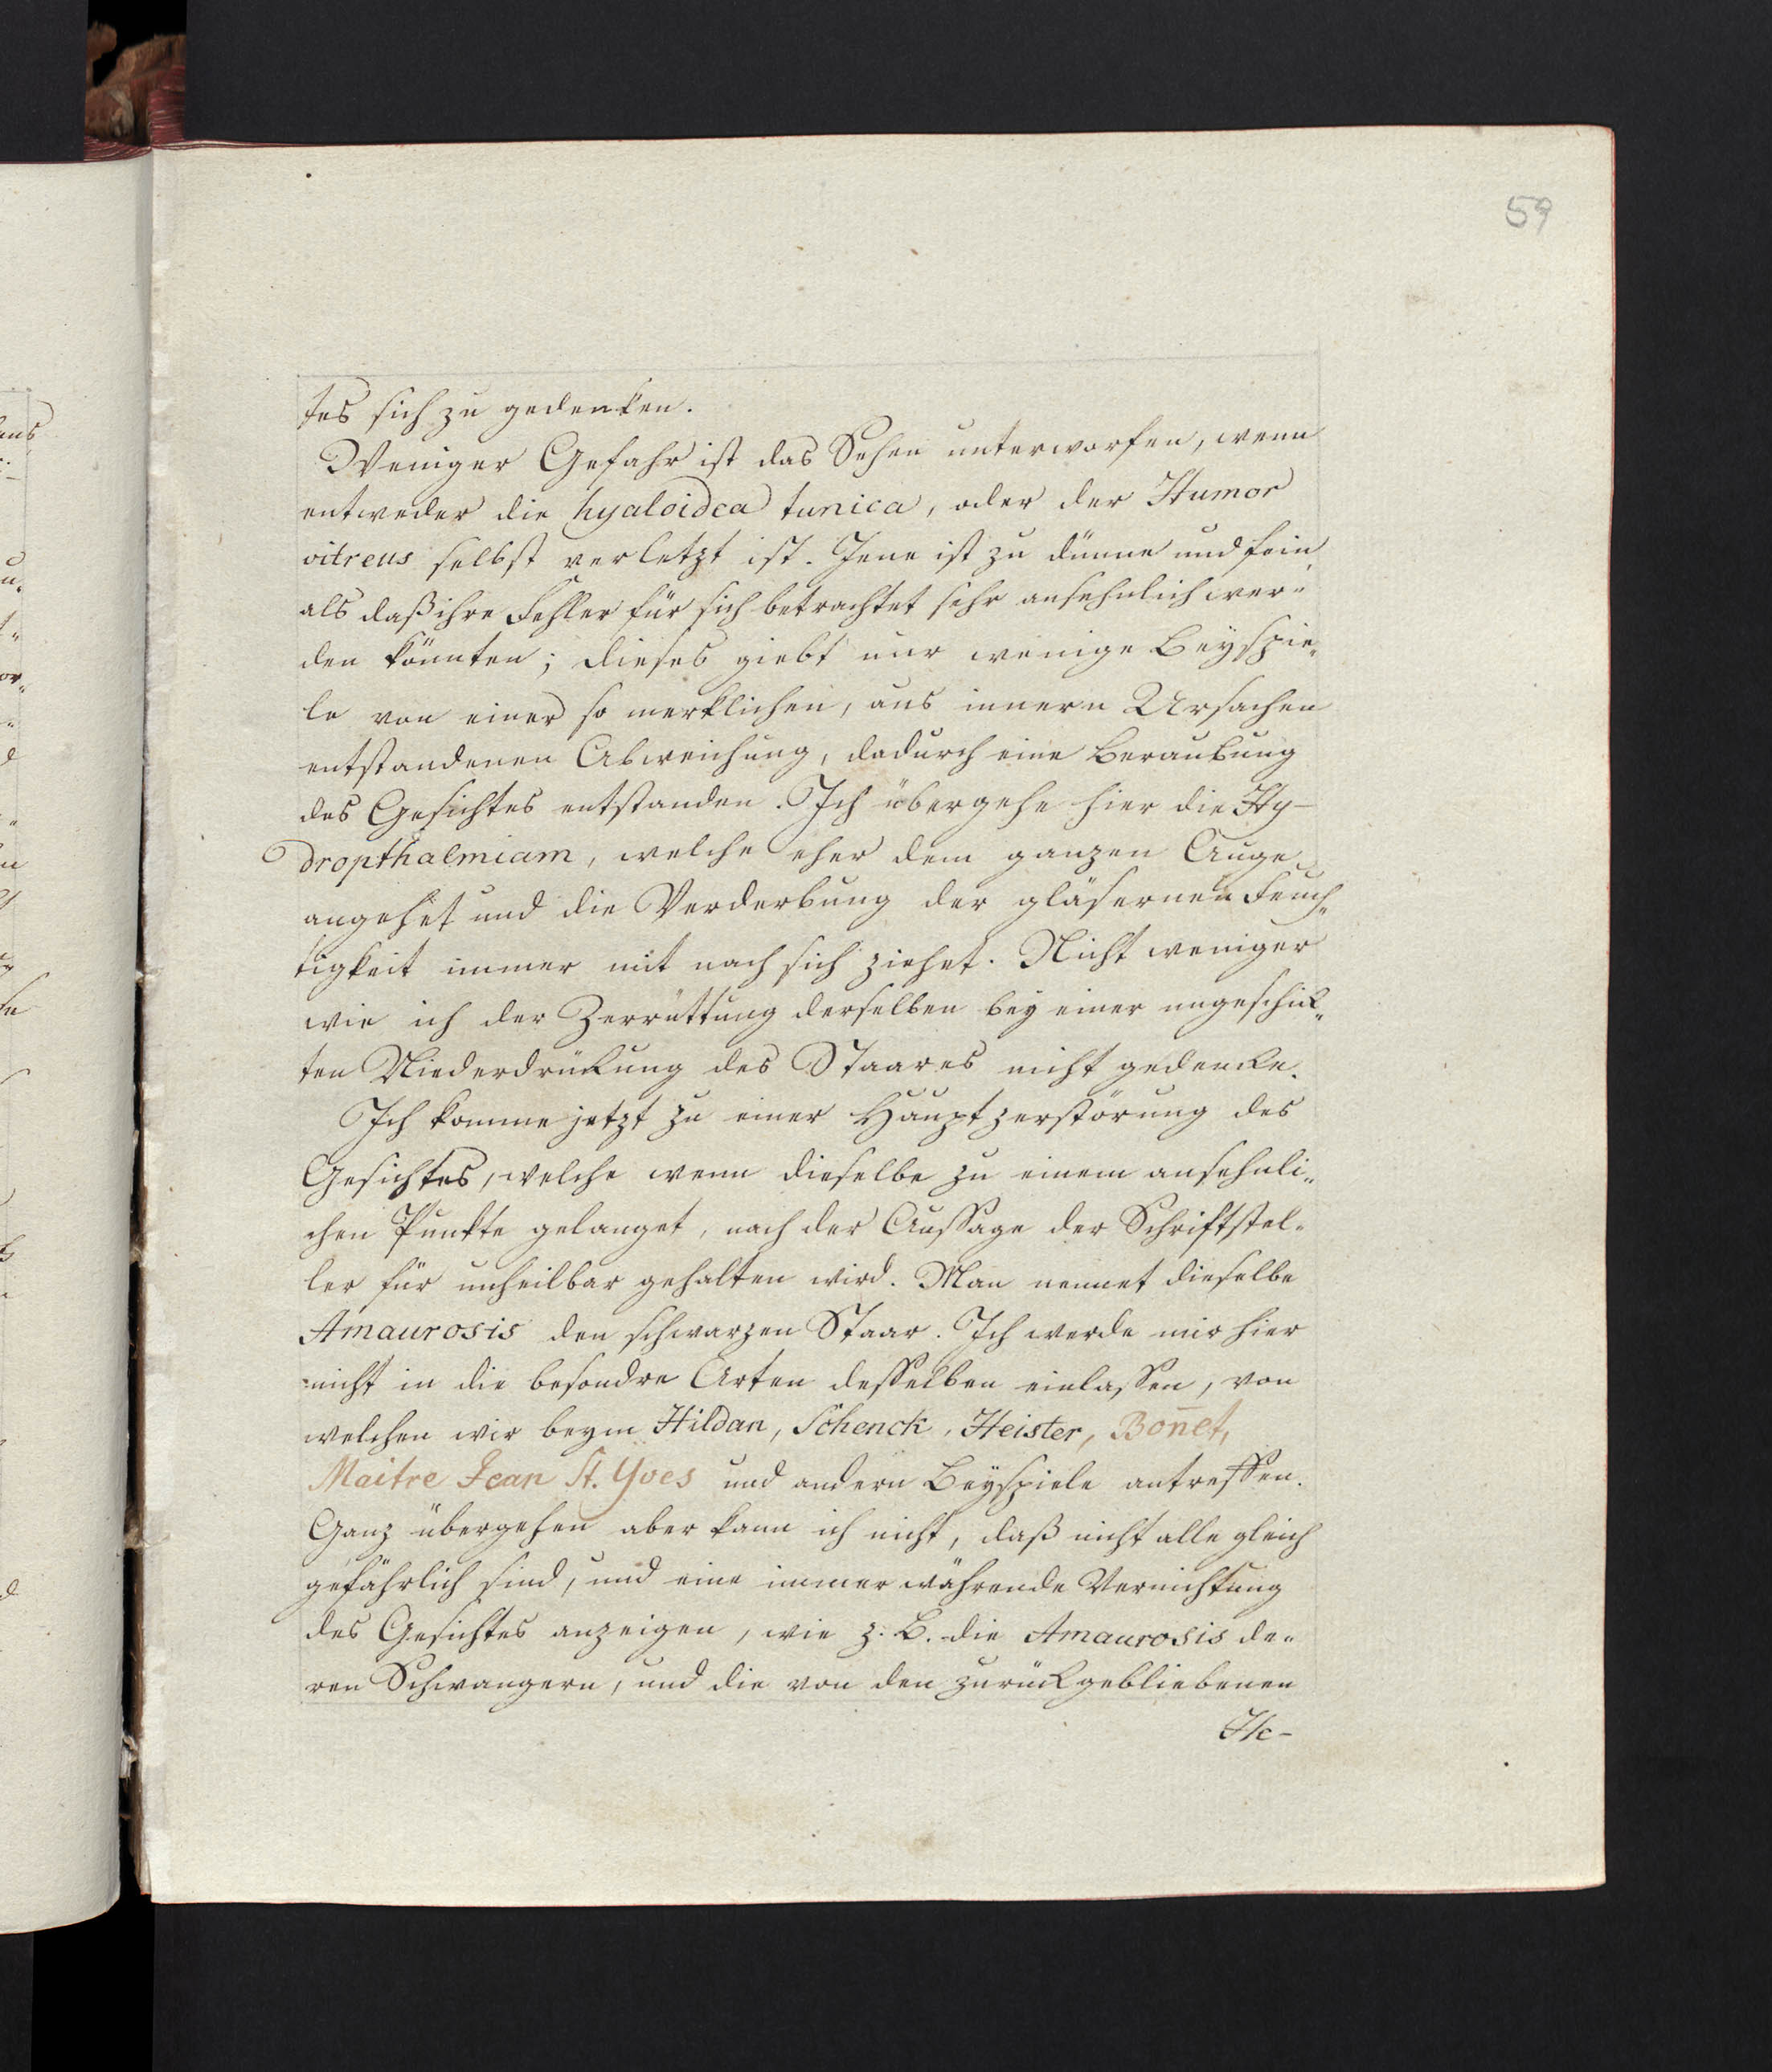 59
tes sich zu gedenken.
Weniger Gefahr ist das Sehen unterworfen, wenn
entweder die hyaloidea tunica, oder der Humor
vitreus selbst verletzt ist. Jene ist zu dünne und fein,
als daß ihre Fehler für sich betrachtet sehr ansehnlich wer-
den könnten; dieses giebt nur wenige Beyspie-
le von einer so merklichen, aus innern Ursachen
entstandenen Abweichung, dadurch eine Beraubung
des Gesichtes entstanden. Ich übergehe hier die Hy-
dropthalmiam, welche eher dem ganzen Auge
angehet und die Verderbung der gläsernen Feuch-
tigkeit immer mit nach sich ziehet. Nicht weniger
wie ich der Zerrüttung derselben bey einer ungeschik-
ten Niederdrükung des Staares nicht gedenke.
Ich komme jetzt zu einer Hauptzerstörung des
Gesichtes, welche wenn dieselbe zu einem ansehnli-
chen Punkte gelanget, nach der Aussage der Schriftstel-
ler für unheilbar gehalten wird. Man nennet dieselbe
Amaurosis den schwarzen Staar. Ich werde mir hier
nicht in die besondre Arten desselben einlassen, von
welchen wir beym Hildan, Schenck, Heister, Bon̄et,
Maitre Jean St. Yves und andern Beyspiele antreffen.
Ganz übergehen aber kann ich nicht, daß nicht alle gleich
gefährlich sind, und eine immer währende Vernichtung
des Gesichtes anzeigen, wie z. B. die Amaurosis de-
ren Schwangern, und die von den zurükgebliebenen
He-